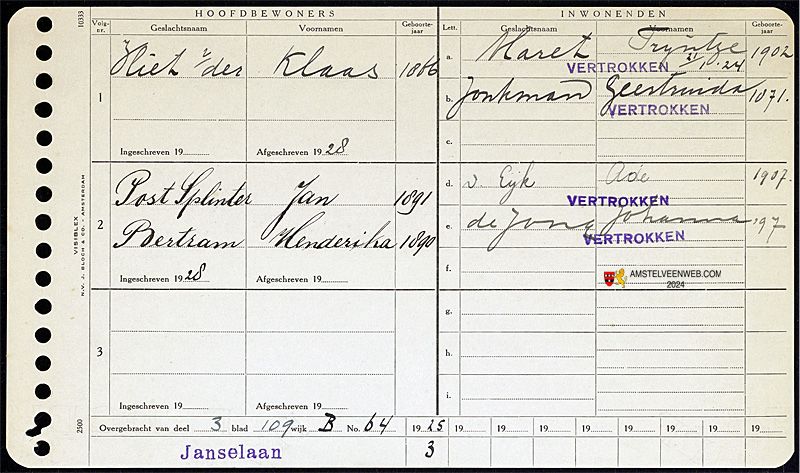 10333
HOOFDBEWONERS
INWONENDEN
Volg-nr. Geslachtsnaam Voornamen Geboorte-jaar
Lett. Geslachtsnaam Voornamen Geboorte-jaar
1 v/der Klaas
a. Maret Tryntje 1902
VERTROKKEN
b. Jonkman Geertruida 1871.
VERTROKKEN
c.
Ingeschreven 19 Afgeschreven 1928
2 Post Splinter Jan 1891
Bertram Henderika 1890
d. v. Eyk Ade 1907.
VERTROKKEN
e. de Jong Johanna 197
VERTROKKEN
f.
AMSTELVEENWEB.COM
2024
Ingeschreven 1928 Afgeschreven 19
3
g.
h.
i.
Ingeschreven 19 Afgeschreven 19
VISIBLEX
N.V. J. BLOCH & CO. - AMSTERDAM
2500
Overgebracht van deel 3 blad 109 wijk B No. 64 1925 19 19 19 19 19 19 19
Janselaan 3